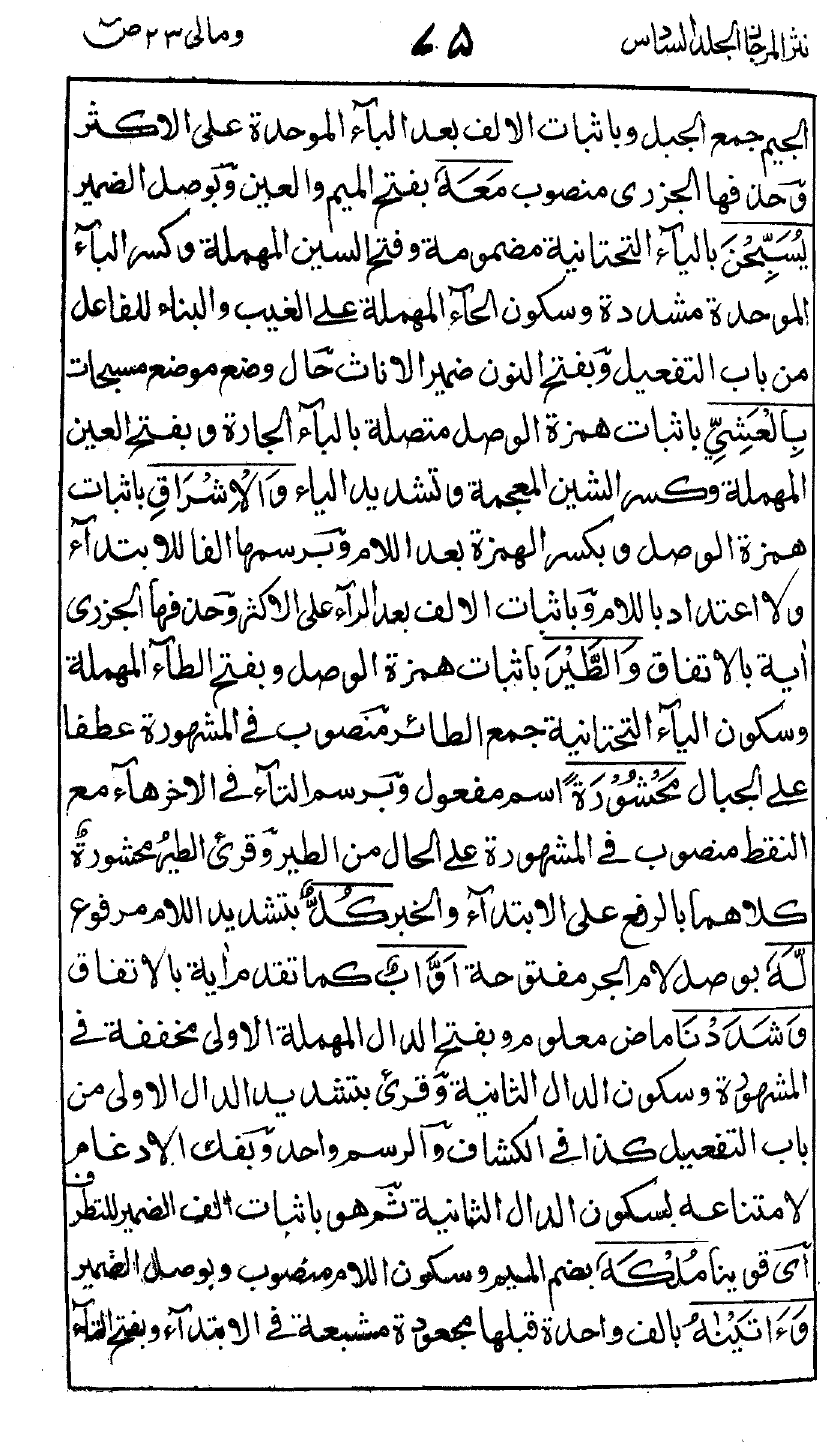 نثر المرجان الجلد السادس ٧٥ ومالى ٢٣ ص
الجيم جمع الجبل وباثبات الالف بعد البآء الموحدة على الاكثر
وحذفها الجزرى منصوب مَعَهٗ بفتح الميم والعين وبوصل الضمير
يُسَبِّحْنَ بالياۤء التحتانية مضمومة وفتح السين المهملة وكسر البآء
الموحدة مشددة وسكون الحآء المهملة على الغيب والبناء للفاعل
من باب التفعيل وبفتح النون ضمير الاناث حال وضع موضع مسبحات
بِالْعَشِيِّ باثبات همزة الوصل متصلة بالبآء الجارة وبفتح العين
المهملة وكسر الشين المعجمة وتشديد الياء وَالْاِشْرَاقِ باثبات
همزة الوصل وبكسر الهمزة بعد اللام وبرسمها الفا للابتدآء
ولا اعتداد باللام وباثبات الالف بعد الرآء على الاكثر وحذفها الجزرى
اٰية بالاتفاق وَالطَّيْرَ باثبات همزة الوصل وبفتح الطآء المهملة
وسكون اليآء التحتانية جمع الطائر منصوب فى المشهورة عطفا
على الجبال مَحْشُوْرَةً اسم مفعول وبرسم التآء فى الاخر هآء مع
النقط منصوب فى المشهورة على الحال من الطير وقرئ الطيرُ محشورةٌ
كلاهما بالرفع على الابتدآء والخبر كُلٌّ بتشديد اللام مرفوع
لَّهٗ بوصل لام الجر مفتوحة اَوَّابٌ كما تقدم اٰية بالاتفاق
وَشَدَدْنَا ماض معلوم وبفتح الدال المهملة الاولى مخففة فى
المشهورة وسكون الدال الثانية وقرئ بتشديد الدال الاولى من
باب التفعيل كذا فى الكشاف والرسم واحد وبفك الادغام
لامتناعه لسكون الدال الثانية ثم هو باثبات الف الضمير للتطرف
اى قوينا مُلْكَهٗ بضم الميم وسكون اللام منصوب وبوصل الضمير
وَءَاتَيْنٰهُ بالف واحدة قبلها مجعودة مشبعة فى الابتدآء وبفتح التآء